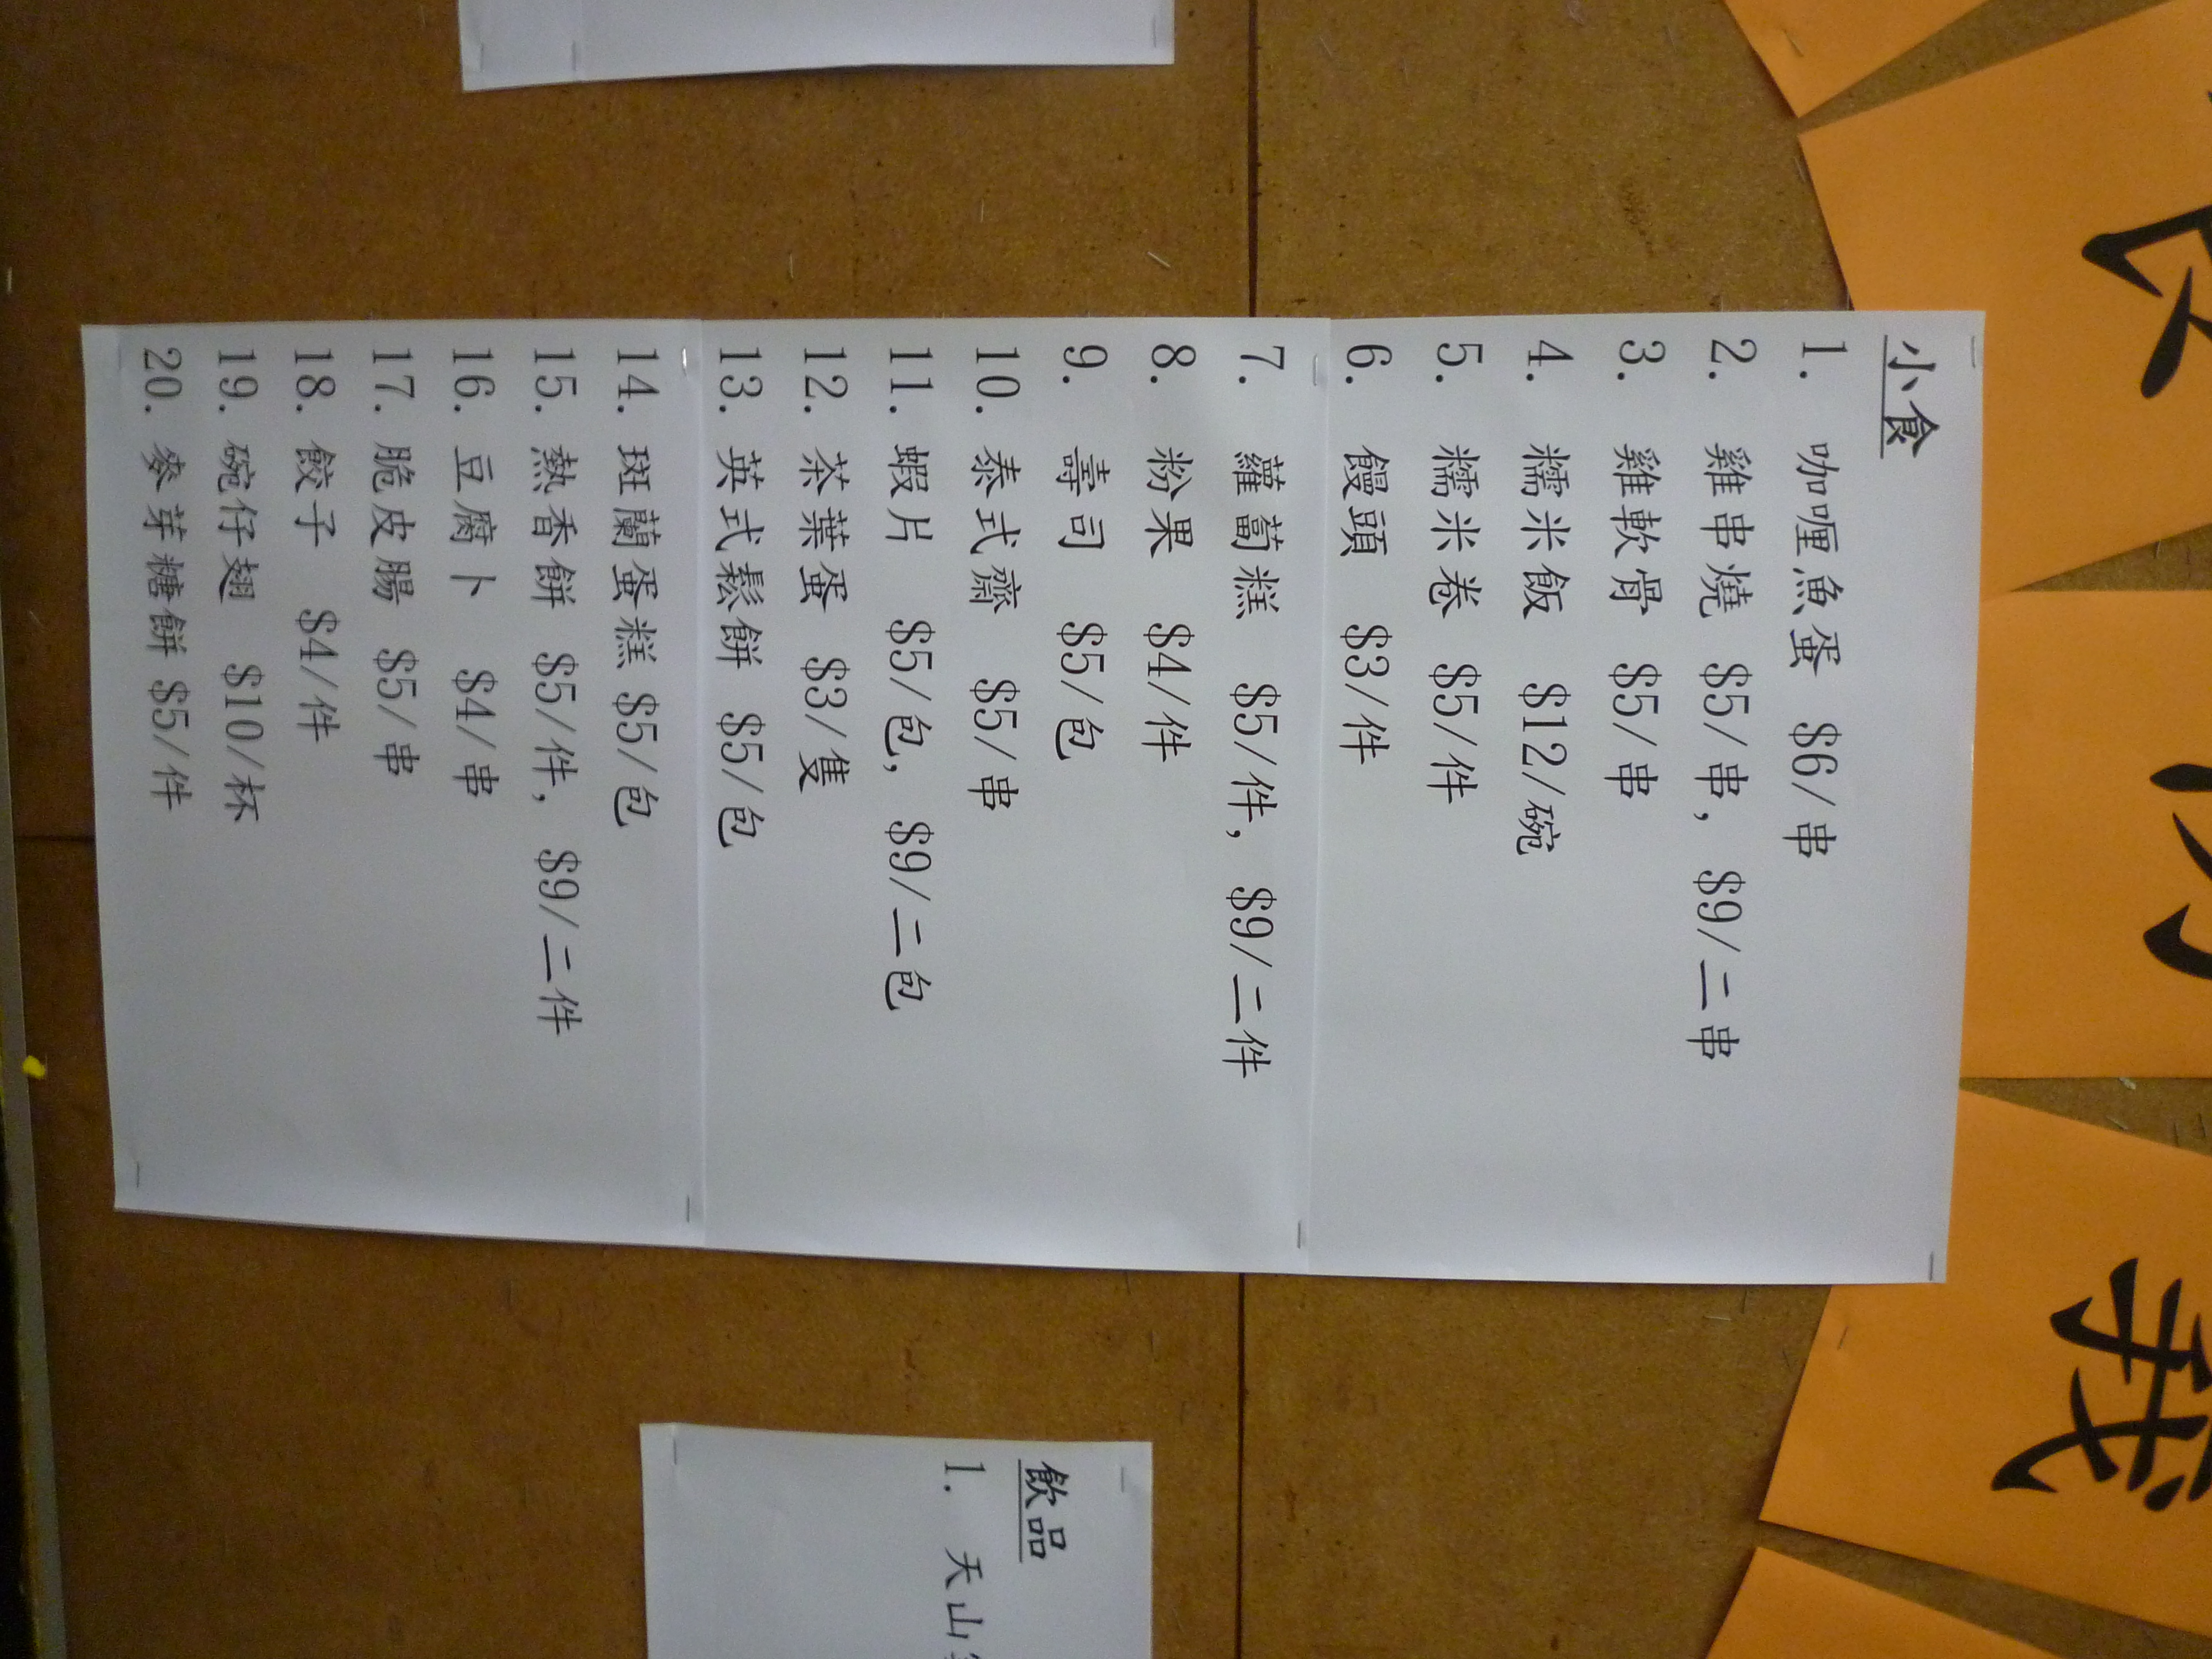 小食
1. 咖喱魚蛋 $6/串
2. 雞串燒 $5/串, $9/二串
3. 雞軟骨 $5/串
4. 糯米飯 $12/碗
5. 糯米卷 $5/件
6. 饅頭 $3/件
7. 蘿蔔糕 $5/件, $9/二件
8. 粉果 $4/件
9. 壽司 $5/包
10. 泰式齋 $5/串
11. 蝦片 $5/包, $9/二包
12. 茶葉蛋 $3/隻
13. 英式鬆餅 $5/包
14. 斑蘭蛋糕 $5/包
15. 熱香餅 $5/件, $9/二件
16. 豆腐卜 $4/串
17. 脆皮腸 $5/串
18. 餃子 $4/件
19. 碗仔翅 $10/杯
20. 麥芽糖餅 $5/件
飲品
1. 天山
我